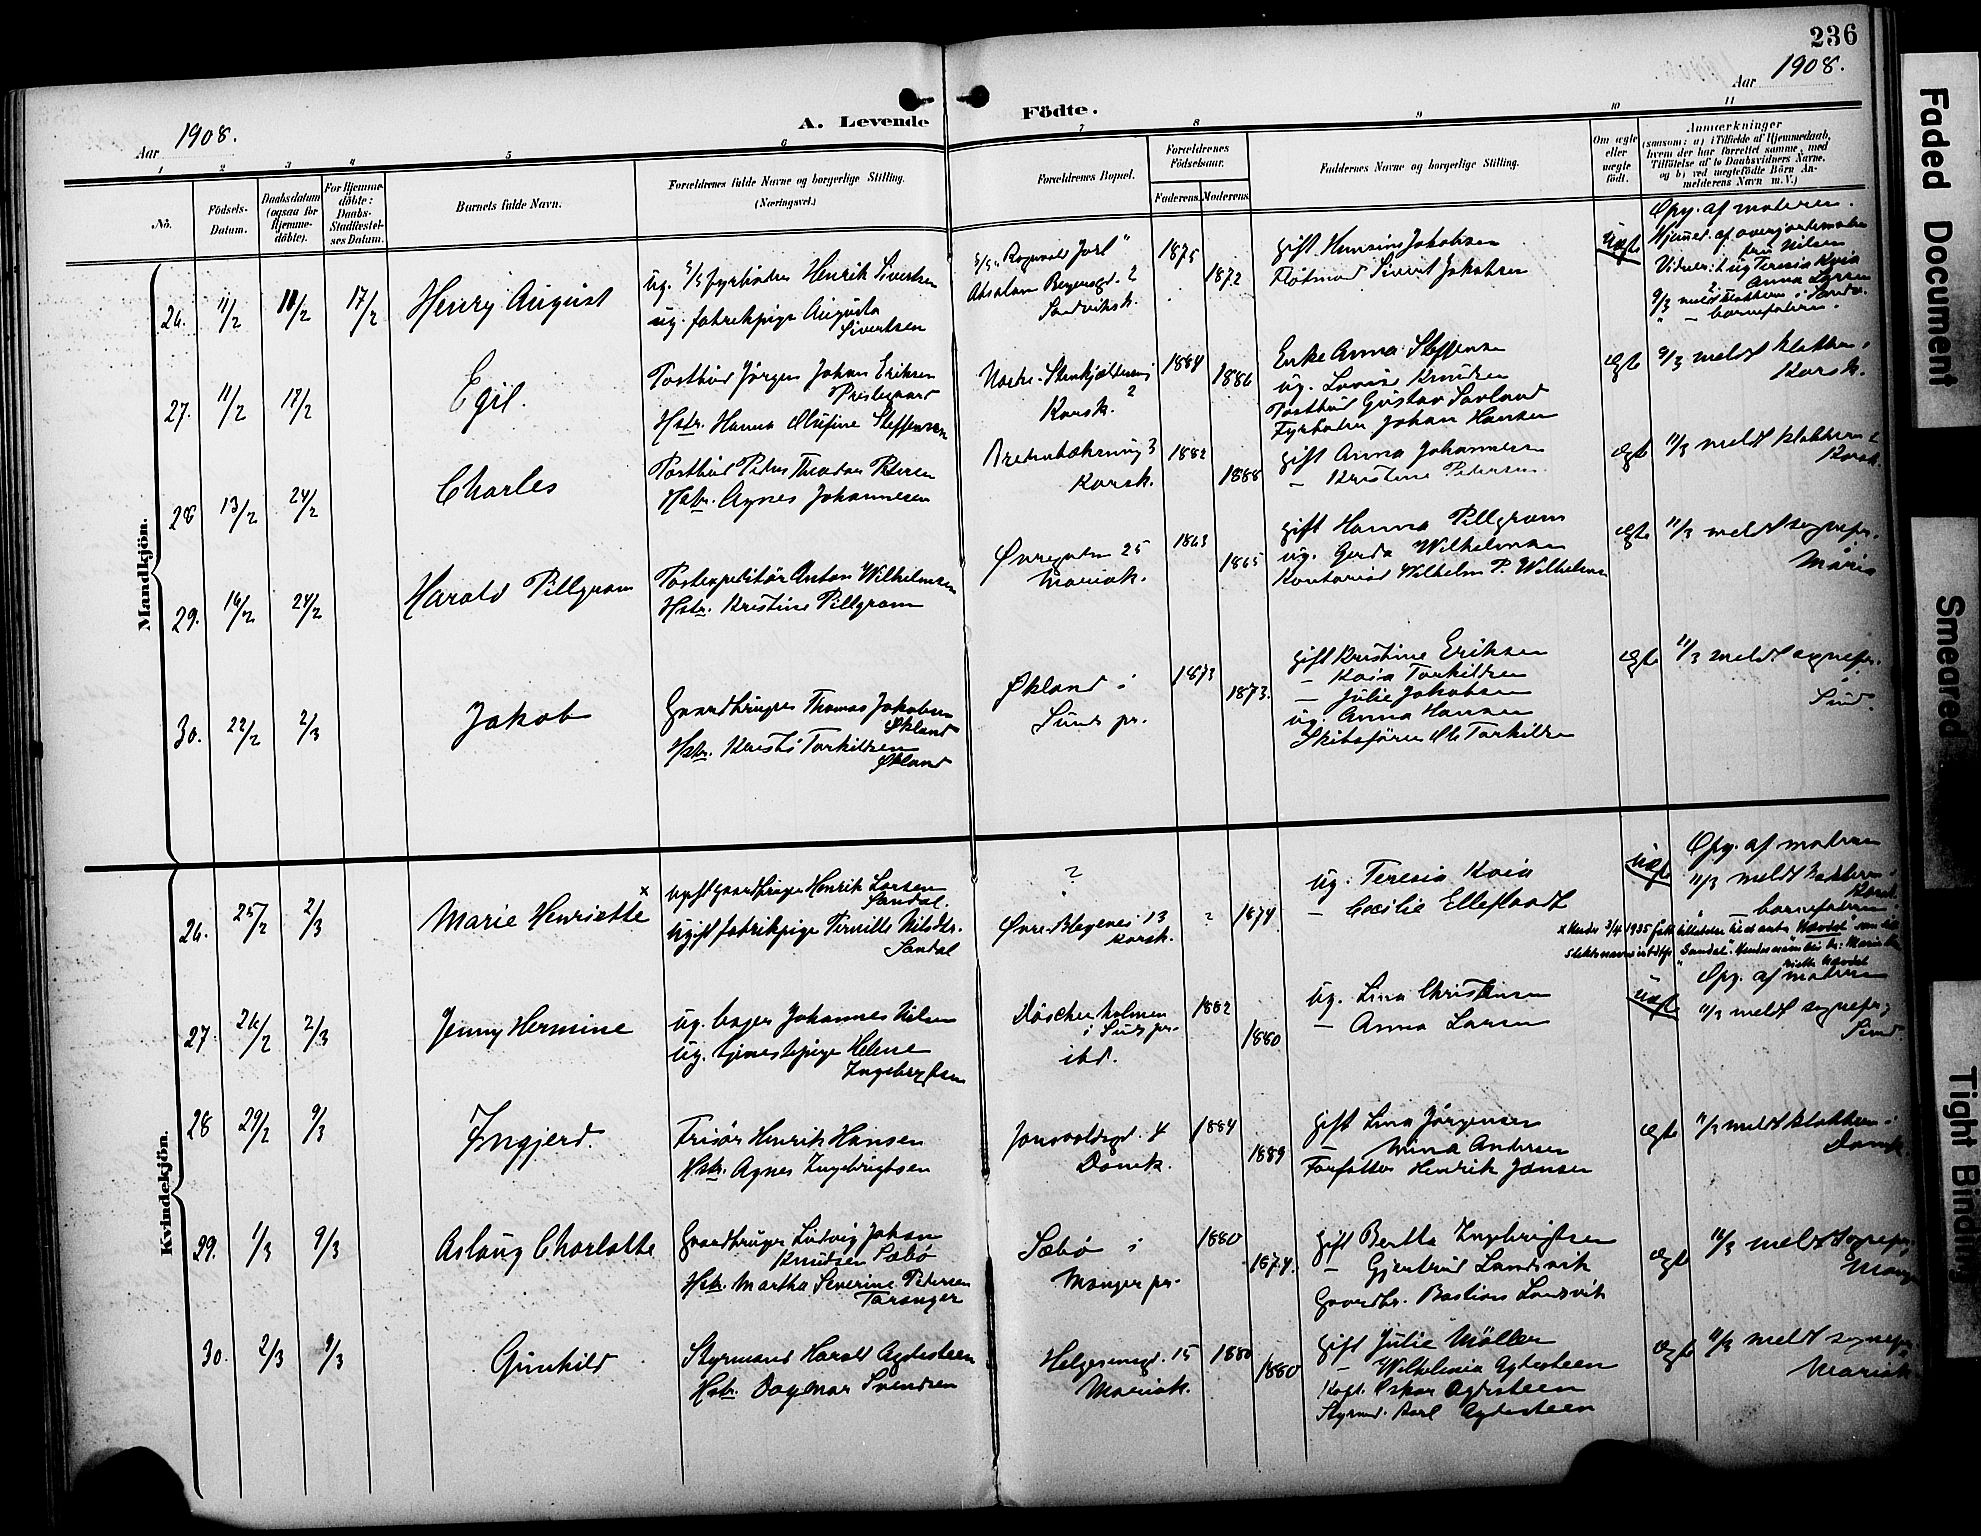 236
Aar 1908.
Aar 1908.
A. Levende Födte.
1 2 3 4 5 6 7 8 9 10 11
No.
Födsels-Datum.
Daabsdatum (ogsaa for Hjemme-döbte).
For Hjemme-döbte: Daabs-Stadfæstel-ses Datum.
Barnets fulde Navn.
Forældrenes fulde Navne og borgerlige Stilling. (Næringsvei.)
Forældrenes Bopæl.
Forældrenes Födselsaar.
Faderens. Moderens.
Faddernes Navne og borgerlige Stilling.
Om ægte eller uægte födt.
Anmærkninger (saasom: a) i Tilfælde af Hjemmedaab, hvem der har forrettet samme, med Tilföielse af to Daabsvidners Navne, og b) ved uægtefödte Börn An-melderens Navn m. V.)
Mandkjön.
26. 11/2 11/2 17/2
Henry August
ug. s/s fyrbøder Henrik Sivertsen
ug. fabrikpige Augusta
Sivertsen
s/s "Ragnvald Jarl"
Absalon Beyersgd. 2
Sandviksk.
1875
1872
gift Hansine Jakobsen
Flötmand Sivert Jakobsen
uægte
Opg. af moderen.
Hjemmed. af overjordemoder
fru Nilsen
Vidner: 1 ug Teresia Kvia
2. Anna Larsen
9/3 meldt klokkeren i Sandv.
" — barnefaderen.
27. 11/2 17/2
Egil.
Postbud Jörgen Johan Eriksen
Prestegaard
Hstr. Hanna Olufine Steffensen
Nedre Stenkjelderen
2
Korsk.
1884
1886
Enke Anna Steffensen
ug. Lovise Knudsen
Postbud Gustav Sovland
Fyrböter Johan Hansen
ægte
9/3 meldt klokkeren i
Korsk.
28 13/2 24/2
Charles
Postbud Peder Theodor Petersen
Hstr. Agnes Johannesen
3
Korsk.
1882
1888
gift Anna Johannesen
— Kristine Petersen
ægte
11/3 meldt klokkeren i
Korsk.
29. 16/2 24/2
Harald Pillgram
Postexpeditör Anton Wilhelmsen
Hstr. Kristine Pillgram
Øvregaten 25
Mariak.
1863
1865
gift Hanna Pillgram
ug. Gerda Wilhelmsen
Kontorist Wilhelm P. Wilhelmsen
ægte
11/3 meldt sognepr.
Maria
30. 22/2 2/3
Jakob
Gaardbruger Thomas Jakobsen
Økland
Hstr. Kristi Torkildsen
Økland
Økland i
Sund pr.
1873
1873.
gift Kristine Eriksen
— Kaia Torkildsen
— Julie Jakobsen
ug. Anna Hansen
Skibsförer Ole Torkildsen
ægte
11/3 meldt sognepr.
Sund.
Kvindekjön.
26. 25/2 2/3
Marie Henriette x
ugift gaardbruger Henrik Larsen
Sandal.
Ugift fabrikpige Pernille Nilsdtr.
Sandal
?
Øvre Blegevei 13
Korsk.
?
1874
ug. Teresia Kvia
— Cæcilie Elleflaadt
uægte
Opg. af moderen
11/3 meldt klokkeren i
Korsk.
" — barnefaderen
27. 26/2 2/3
Jenny Hermine
ug. bager Johannes Nilsen
ug. tjenestepige Helene
Ingebrigtsen
Döscherholmen
i Sund pr.
ibd.
1882
1880
ug. Lina Christensen
— Anna Larsen
uægte
Opg. af moderen
11/3 meldt sognepr. i
Sund.
28 29/2 9/3
Ingjerd.
Frisör Henrik Hansen
Hstr. Agnes Ingebrigtsen
Jonsvoldsgd. 4
Domk.
1884
1889
gift Lina Jörgensen
— Mina Andersen
Forfatter Henrik Jansen
ægte
11/3 meldt klokkeren i
Domk
29. 1/3 9/3
Aslaug Charlotte
Gaardbruger Ludvig Johan
Knudsen Sæbö
Hstr. Martha Severine Petersen
Toranger
Sæbö i
Manger pr.
1880
1874.
gift Bertha Ingebrigtsen
— Gjertrud Landsvik
Gaardbr. Bastian Landsvik
ægte
11/3 meldt sognepr. i
Manger
30. 2/3 9/3
Gunhild
Styrmand Harald Agdesteen
Hstr. Dagmar Svendsen
Helgesensgd. 15
Mariak.
1880
1880
gift Julie Möller
— Wilhelmia Agdesteen
Kapt. Oskar Agdesteen
Styrmd. Karl Agdesteen
ægte
11/3 meldt sognepr.
Mariak
Faded Document
Smeared
Tight Binding